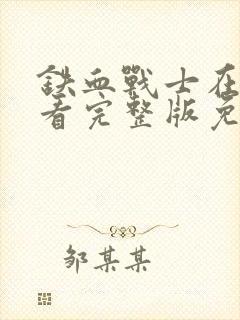 铁血戰士在
看完整版免
邹某某